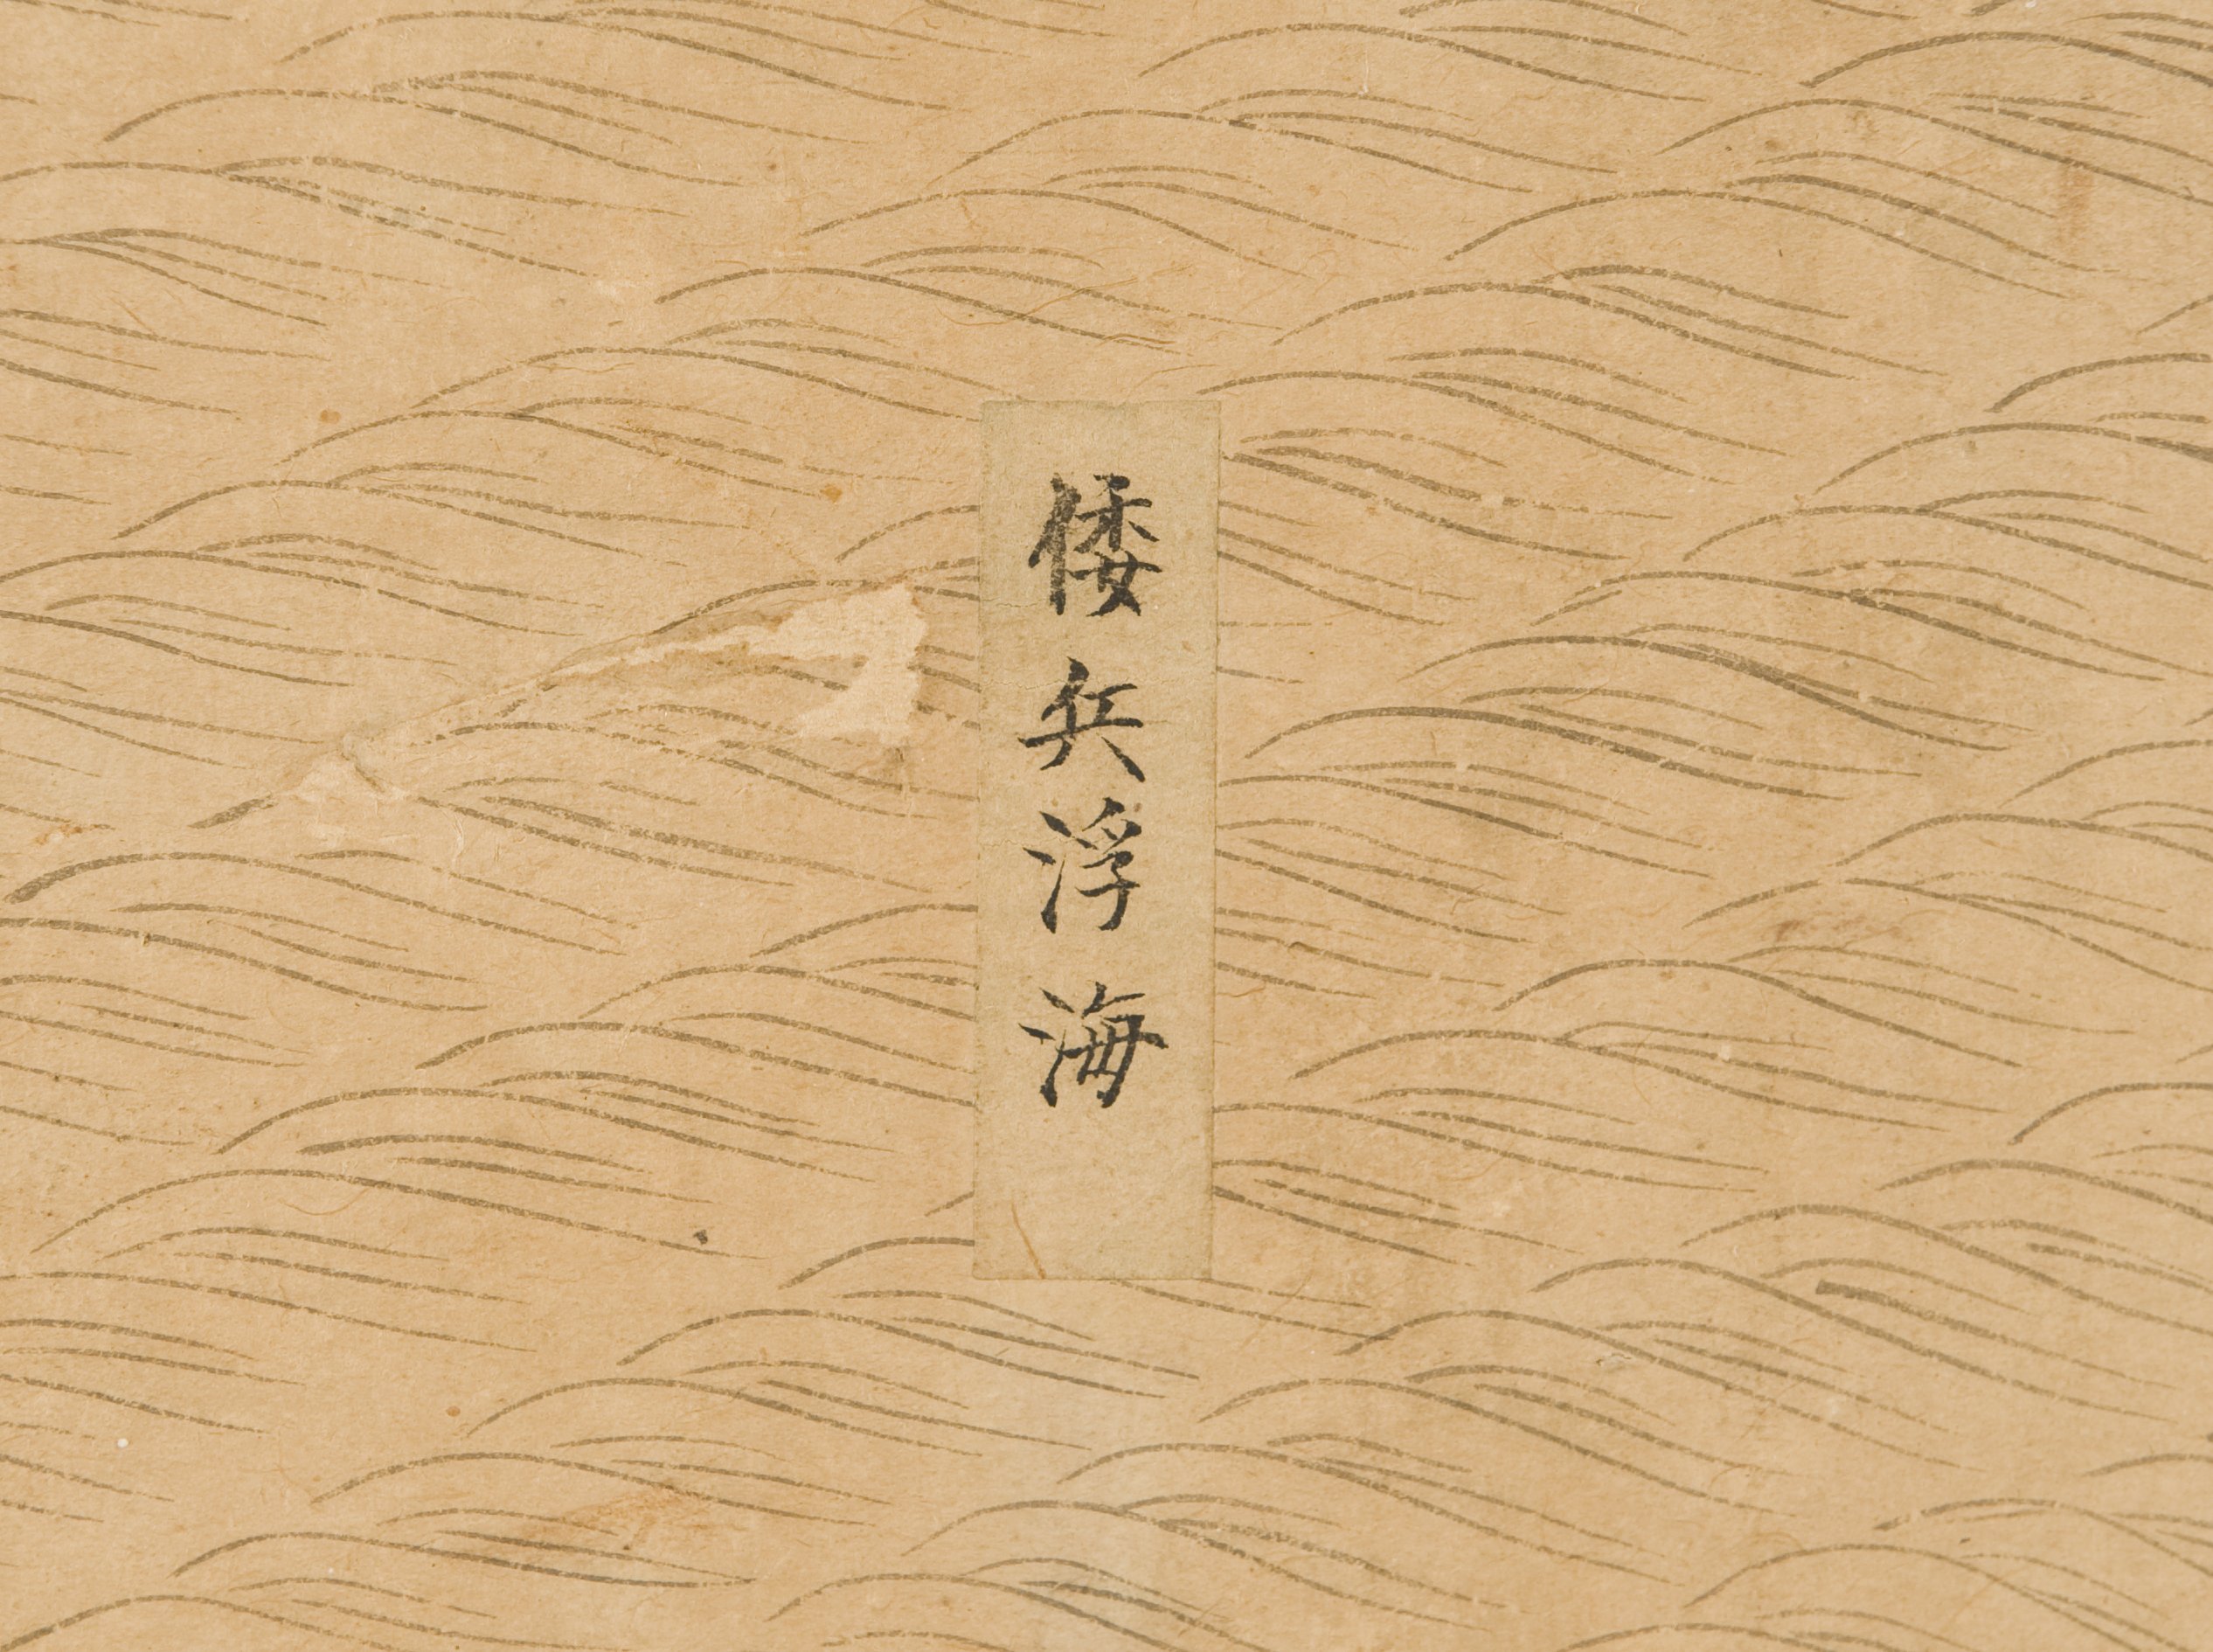 倭兵浮海